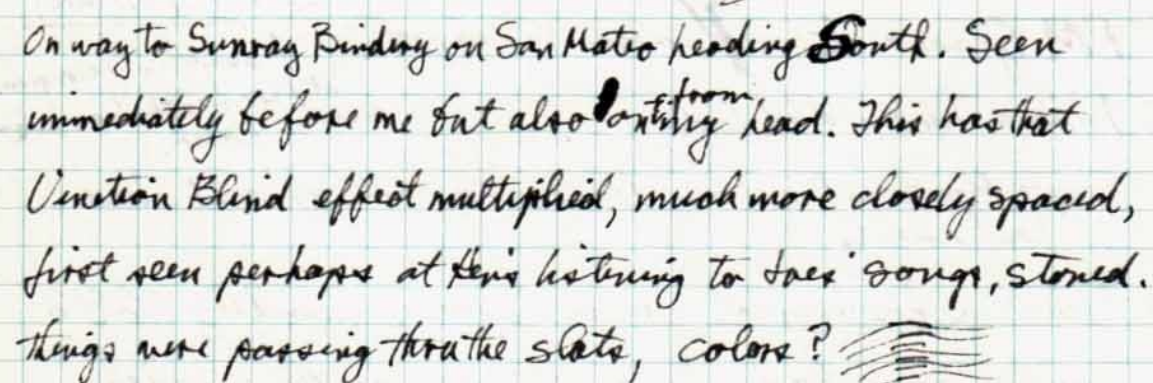 On way to Sunray Bindery on San Mateo heading South. Seen
immediately before me but also from head. This has that
Venetian Blind effect multiplied, much more closely spaced,
first seen perhaps at listening to songs, stoned.
things were passing thru the slats, colors?